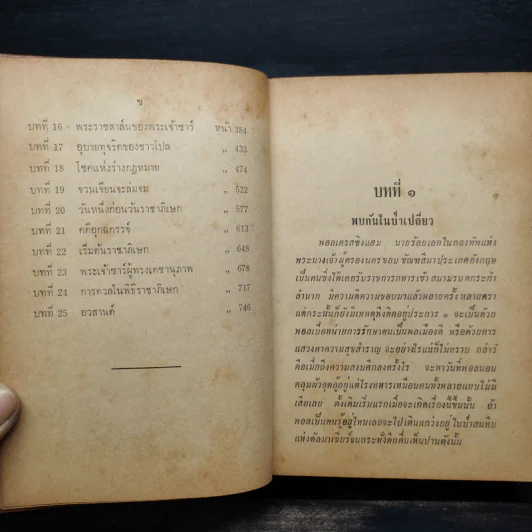 ข
บทที่ 16 - พระราชสาส์นของพระเจ้าซาร์ หน้า 384
บทที่ 17 อุบายทุจริตของชาวโปล „ 433
บทที่ 18 โชคแห่งร่างกฎหมาย „ 474
บทที่ 19 จวนเจียนจะล่มจม „ 522
บทที่ 20 วันหนึ่งก่อนวันราชาภิเษก „ 577
บทที่ 21 คดีอุกฉกรรจ์ „ 613
บทที่ 22 เริ่มต้นราชาภิเษก „ 648
บทที่ 23 พระเจ้าซาร์ผู้ทรงเดชานุภาพ „ 678
บทที่ 24 การควลในพิธีราชาภิเษก „ 717
บทที่ 25 อวสานต์ „ 746
บทที่ ๑
พบกันในป่าเปลี่ยว
พอลเครสซิงแฮม นายร้อยเอกในกองทัพแห่ง
พระนางเจ้าผู้ครองนครขอบขัณฑสีมาประเทศอังกฤษ
เป็นคนซึ่งได้เคยรับราชการทหารเข้าสนามรบตรากตรำ
ลำบาก มีความดีความชอบมาแล้วหลายครั้งหลายครา
แต่กระนั้นก็ยังมีเหตุพิงคิดอยู่ประการ ๑ จะเป็นด้วย
พอลเบื่อหน่ายการรักษาตนเป็นพลเมืองดี หรือด้วยการ
แสวงหาความสุขสำราญ จะอย่างไรแน่ก็ไม่ทราบ กล่าว
คือเมื่อถึงความสงบศึกลงครั้งไร จะหาวันที่พอลนอน
คลุมผ้าอุตุอู้อยู่แต่โรงทหารเหมือนคนทั้งหลายแทบไม่มี
เสียเลย ดั้งเดิมเริ่มแรกเมื่อจะเกิดเรื่องนี้ขึ้นนั้น ถ้า
พอลเป็นคนรู้อยู่ไหนเลยจะไปเดินแกว่งอยู่ในป่าสนทึบ
แห่งดัลมาเชียร์จนกระทั่งดึกดื่นเห็นปานดังนั้น